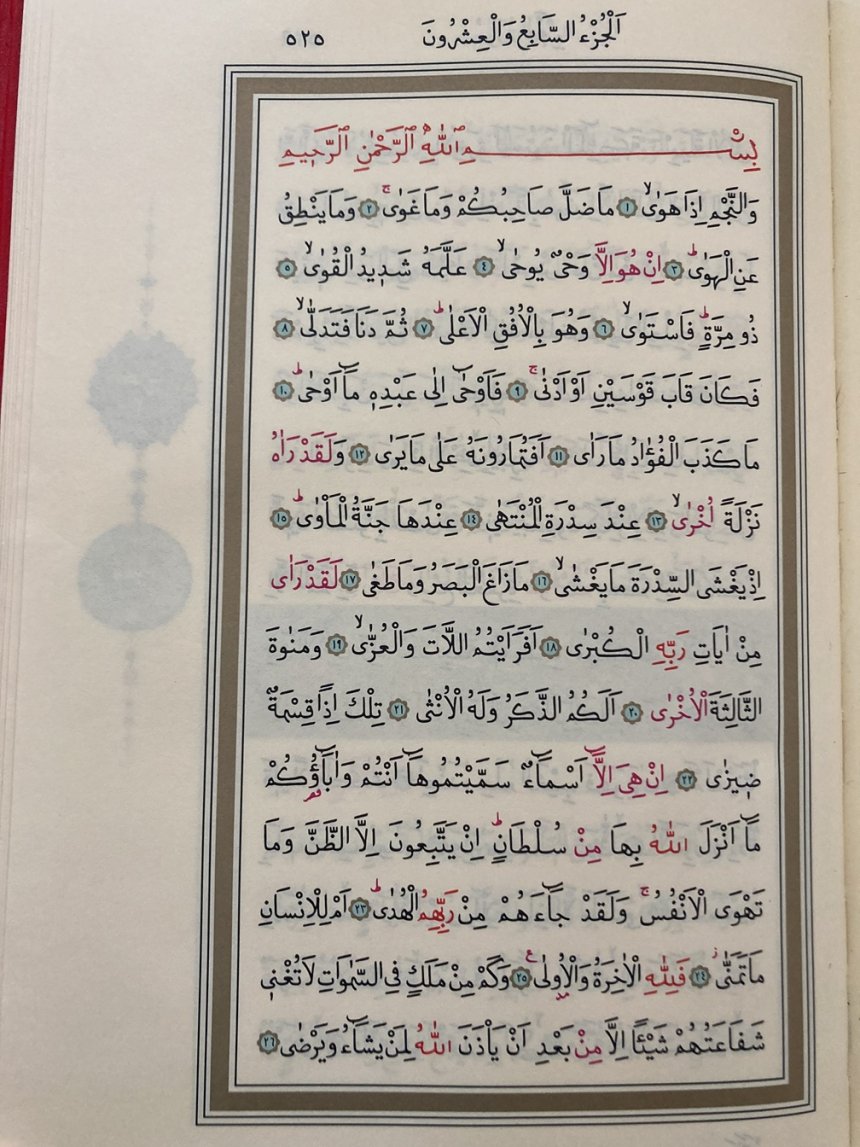 اَلْجُزْءُ السَّابِعُ وَالْعِشْرُونَ
٥٢٥
بِسْمِ اللّٰهِ الرَّحْمٰنِ الرَّحٖيمِ
وَالنَّجْمِ اِذَا هَوٰىۙ ١ مَا ضَلَّ صَاحِبُكُمْ وَمَا غَوٰىۚ ٢ وَمَا يَنْطِقُ
عَنِ الْهَوٰىۜ ٣ اِنْ هُوَ اِلَّا وَحْيٌ يُوحٰىۙ ٤ عَلَّمَهُ شَدٖيدُ الْقُوٰىۙ ٥
ذُو مِرَّةٍۜ فَاسْتَوٰىۙ ٦ وَهُوَ بِالْاُفُقِ الْاَعْلٰىۜ ٧ ثُمَّ دَنَا فَتَدَلّٰىۙ ٨
فَكَانَ قَابَ قَوْسَيْنِ اَوْ اَدْنٰىۚ ٩ فَاَوْحٰٓى اِلٰى عَبْدِهٖ مَٓا اَوْحٰىۜ ١٠
مَا كَذَبَ الْفُؤٰادُ مَا رَاٰى ١١ اَفَتُمَارُونَهُ عَلٰى مَا يَرٰى ١٢ وَلَقَدْ رَاٰهُ
نَزْلَةً اُخْرٰىۙ ١٣ عِنْدَ سِدْرَةِ الْمُنْتَهٰى ١٤ عِنْدَهَا جَنَّةُ الْمَاْوٰىۜ ١٥
اِذْ يَغْشَى السِّدْرَةَ مَا يَغْشٰىۙ ١٦ مَا زَاغَ الْبَصَرُ وَمَا طَغٰى ١٧ لَقَدْ رَاٰى
مِنْ اٰيَاتِ رَبِّهِ الْكُبْرٰى ١٨ اَفَرَاَيْتُمُ اللَّاتَ وَالْعُزّٰىۙ ١٩ وَمَنٰوةَ
الثَّالِثَةَ الْاُخْرٰى ٢٠ اَلَكُمُ الذَّكَرُ وَلَهُ الْاُنْثٰى ٢١ تِلْكَ اِذًا قِسْمَةٌ
ضٖيزٰى ٢٢ اِنْ هِيَ اِلَّٓا اَسْمَٓاءٌ سَمَّيْتُمُوهَٓا اَنْتُمْ وَاٰبَٓاؤُ۬كُمْ
مَٓا اَنْزَلَ اللّٰهُ بِهَا مِنْ سُلْطَانٍۜ اِنْ يَتَّبِعُونَ اِلَّا الظَّنَّ وَمَا
تَهْوَى الْاَنْفُسُۚ وَلَقَدْ جَٓاءَهُمْ مِنْ رَبِّهِمُ الْهُدٰىۜ ٢٣ اَمْ لِلْاِنْسَانِ
مَا تَمَنّٰىۘ ٢٤ فَلِلّٰهِ الْاٰخِرَةُ وَالْاُو۫لٰى ٢٥ وَكَمْ مِنْ مَلَكٍ فِي السَّمٰوَاتِ لَا تُغْنٖي
شَفَاعَتُهُمْ شَيْـًٔا اِلَّا مِنْ بَعْدِ اَنْ يَاْذَنَ اللّٰهُ لِمَنْ يَشَٓاءُ وَيَرْضٰى ٢٦